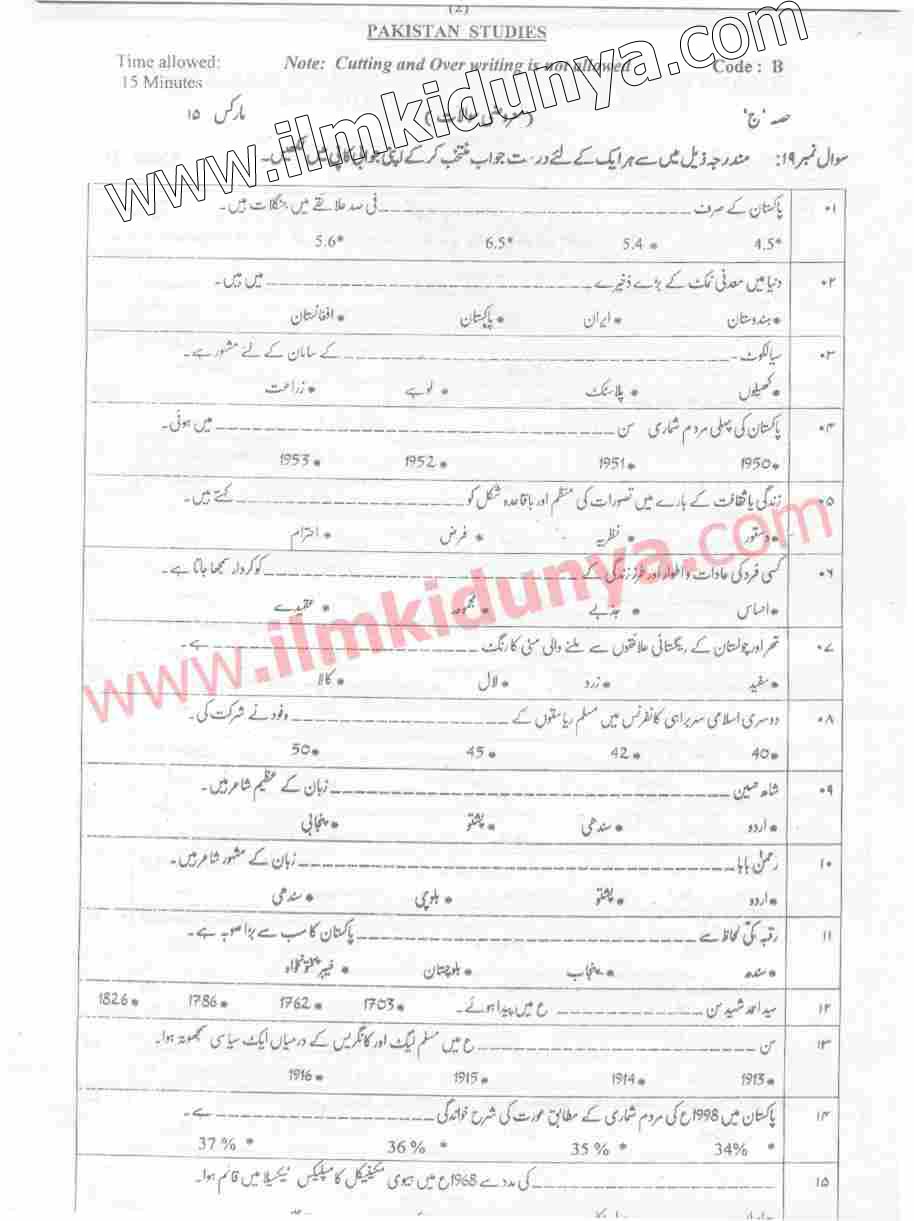 (2)
PAKISTAN STUDIES
Time allowed: Note: Cutting and Over writing is not allowed Code : B
15 Minutes
حصہ 'ج' (معروضی سوالات) مارکس ۱۵
سوال نمبر ۱۹: مندرجہ ذیل میں سے ہر ایک کے لئے درست جواب منتخب کر کے اپنی جوابی کاپی میں لکھیں۔
www.ilmkidunya.com
۰۱ پاکستان کے صرف ــــــــــ فی صد علاقے میں جنگلات ہیں۔
4.5* 5.4 * 6.5* 5.6*
۰۲ دنیا میں معدنی نمک کے بڑے ذخیرے ــــــــــ میں ہیں۔
* ہندوستان * ایران * پاکستان * افغانستان
۰۳ سیالکوٹ ــــــــــ کے سامان کے لئے مشہور ہے۔
* کھیلوں * پلاسٹک * لوہے * زراعت
۰۴ پاکستان کی پہلی مردم شماری سن ــــــــــ میں ہوئی۔
1950* 1951* 1952* 1953*
۰۵ زندگی یا ثقافت کے بارے میں تصورات کی منظم اور باقاعدہ شکل کو ــــــــــ کہتے ہیں۔
* دستور * نظریہ * فرض * احترام
۰۶ کسی فرد کی عادات و اطوار اور طرز زندگی کے ــــــــــ کو کردار سمجھا جاتا ہے۔
* احساس * جذبے * مجموعہ * عقیدے
www.ilmkidunya.com
۰۷ تھر اور چولستان کے ریگستانی علاقوں سے ملنے والی مٹی کا رنگ ــــــــــ ہے۔
* سفید * زرد * لال * کالا
۰۸ دوسری اسلامی سربراہی کانفرنس میں مسلم ریاستوں کے ــــــــــ وفود نے شرکت کی۔
40* 42* 45* 50*
۰۹ شاہ حسین ــــــــــ زبان کے عظیم شاعر ہیں۔
* اردو * سندھی * پشتو * پنجابی
۱۰ رحمٰن بابا ــــــــــ زبان کے مشہور شاعر ہیں۔
* اردو * پشتو * بلوچی * سندھی
۱۱ رقبہ کی لحاظ سے ــــــــــ پاکستان کا سب سے بڑا صوبہ ہے۔
* سندھ * پنجاب * بلوچستان * خیبر پختونخواہ
۱۲ سید احمد شہید سن ــــــــــ ع میں پیدا ہوئے۔ 1703* 1762* 1786* 1826*
۱۳ سن ــــــــــ ع میں مسلم لیگ اور کانگریس کے درمیان ایک سیاسی سمجھوتہ ہوا۔
1913* 1914* 1915* 1916*
۱۴ پاکستان میں 1998ع کی مردم شماری کے مطابق عورت کی شرح خواندگی ــــــــــ ہے۔
34% * 35 % * 36 % * 37 % *
۱۵ ــــــــــ کی مدد سے 1968ع میں ہیوی مکینیکل کامپلیکس ٹیکسیلا میں قائم ہوا۔